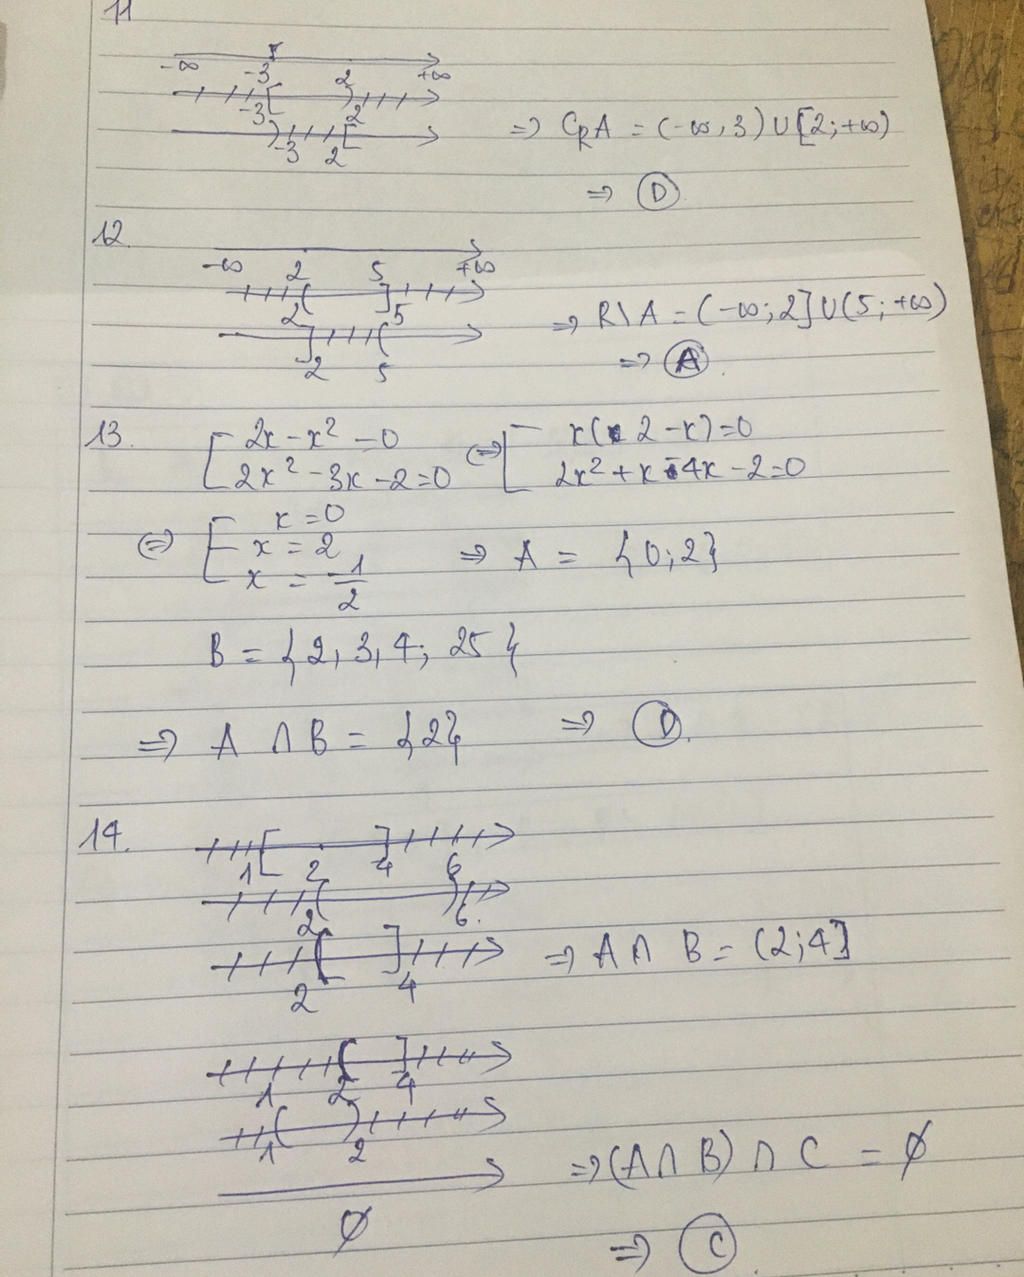 11
-∞ -3 2 +∞
-3 2
-3 2
⇒ CRA = (-∞, 3) ∪ [2; +∞)
⇒ D
12.
-∞ 2 5 +∞
2 5
2 5
⇒ R\A = (-∞; 2] ∪ (5; +∞)
⇒ A.
13. [ 2x - x² = 0 ⇔ [ x(2 - x) = 0
2x² - 3x - 2 = 0 2x² + x - 4x - 2 = 0
⇔ [ x = 0
x = 2 ⇒ A = {0; 2}
x = -1/2
B = {2, 3, 4; 25}
⇒ A ∩ B = {2} ⇒ D.
14.
1 2 4 6
2 6.
2 4 ⇒ A ∩ B = (2; 4]
1 2 4
1 2
⇒ (A ∩ B) ∩ C = ∅
∅
⇒ C